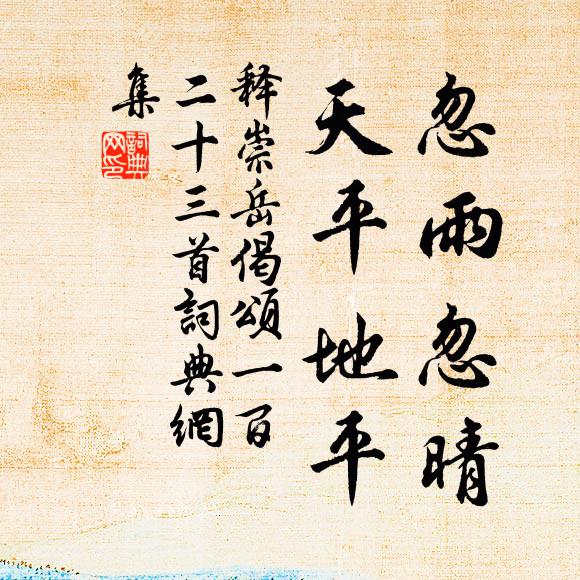 忽雨忽晴
天平地平
释崇岳偈頌一百
二十三首詞典網
集
詞典網印